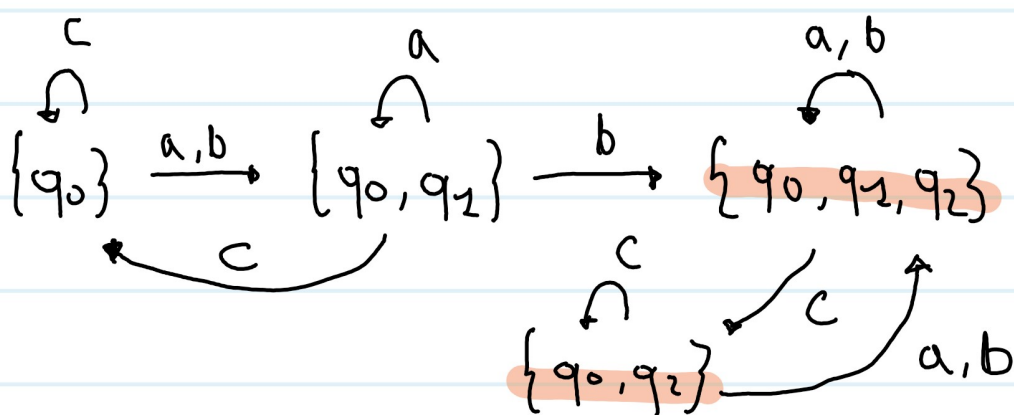 c a a, b
{q0} a,b {q0, q1} b {q0, q1, q2}
c c c
{q0, q2} a, b